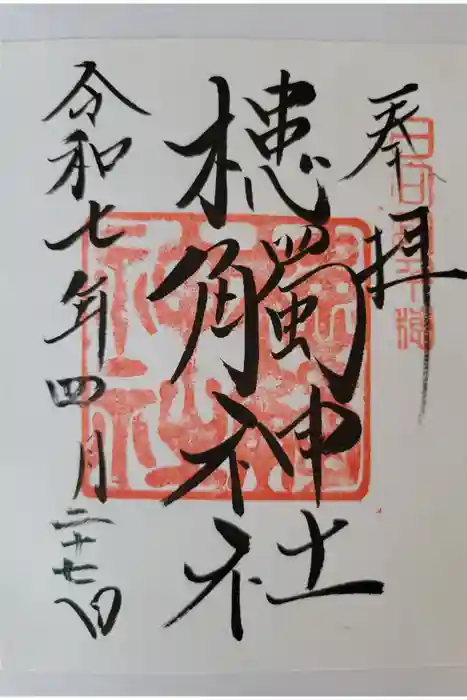 奉拝
槵觸神社
令和七年四月二十七日